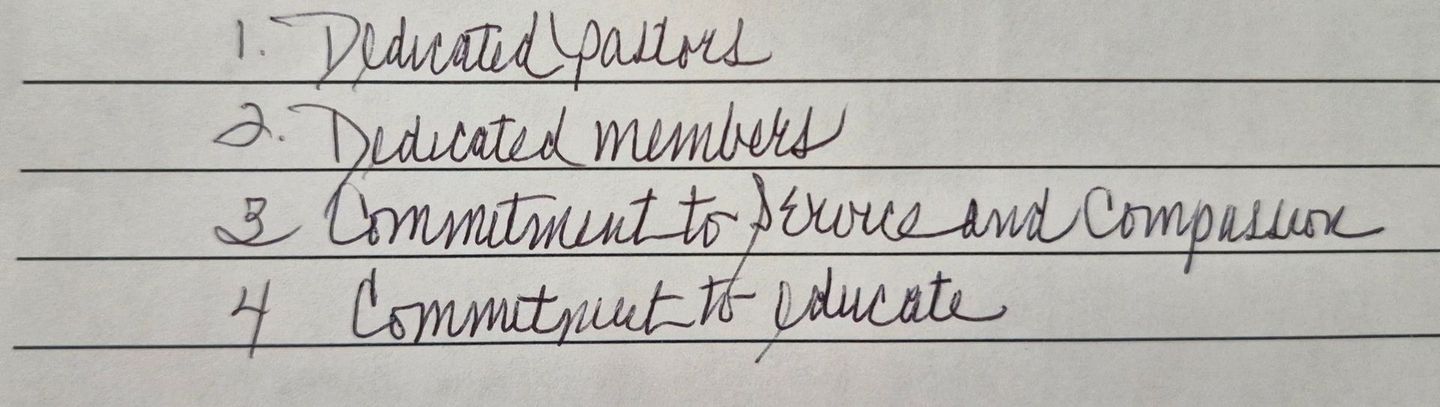 1. Dedicated pastors
2. Dedicated members
3 Commitment to Service and Compassion
4 Commitment to educate